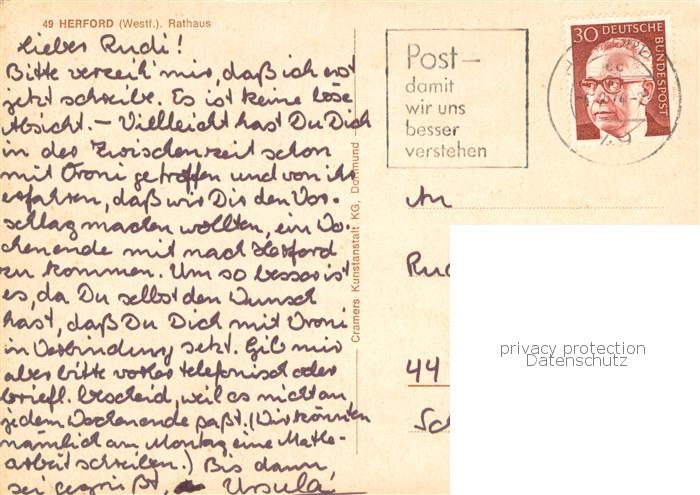 49 HERFORD (Westf.). Rathaus
Lieber Rudi!
Bitte verzeih' mir, daß ich erst
jetzt schreibe. Es ist keine böse
Absicht. – Vielleicht hast Du Dich
in der Zwischenzeit schon
mit Vroni getroffen und von ihr
erfahren, daß wir Dir den Vor-
schlag machen wollten, ein Wo-
chenende mit nach Herford
zu kommen. Um so besser ist
es, da Du selbst den Wunsch
hast, daß Du Dich mit Vroni
in Verbindung setzt. Gib mir
aber bitte vorher telefonisch oder
briefl. Bescheid, weil es nicht an
jedem Wochenende paßt. (Wir könnten
nämlich am Montag eine Mathe-
arbeit schreiben.) Bis dann,
sei gegrüßt, Ursula!
Cramers Kunstanstalt KG, Dortmund
Post –
damit
wir uns
besser
verstehen
30 DEUTSCHE
BUNDESPOST
An
Rud
44
Sch
privacy protection
Datenschutz